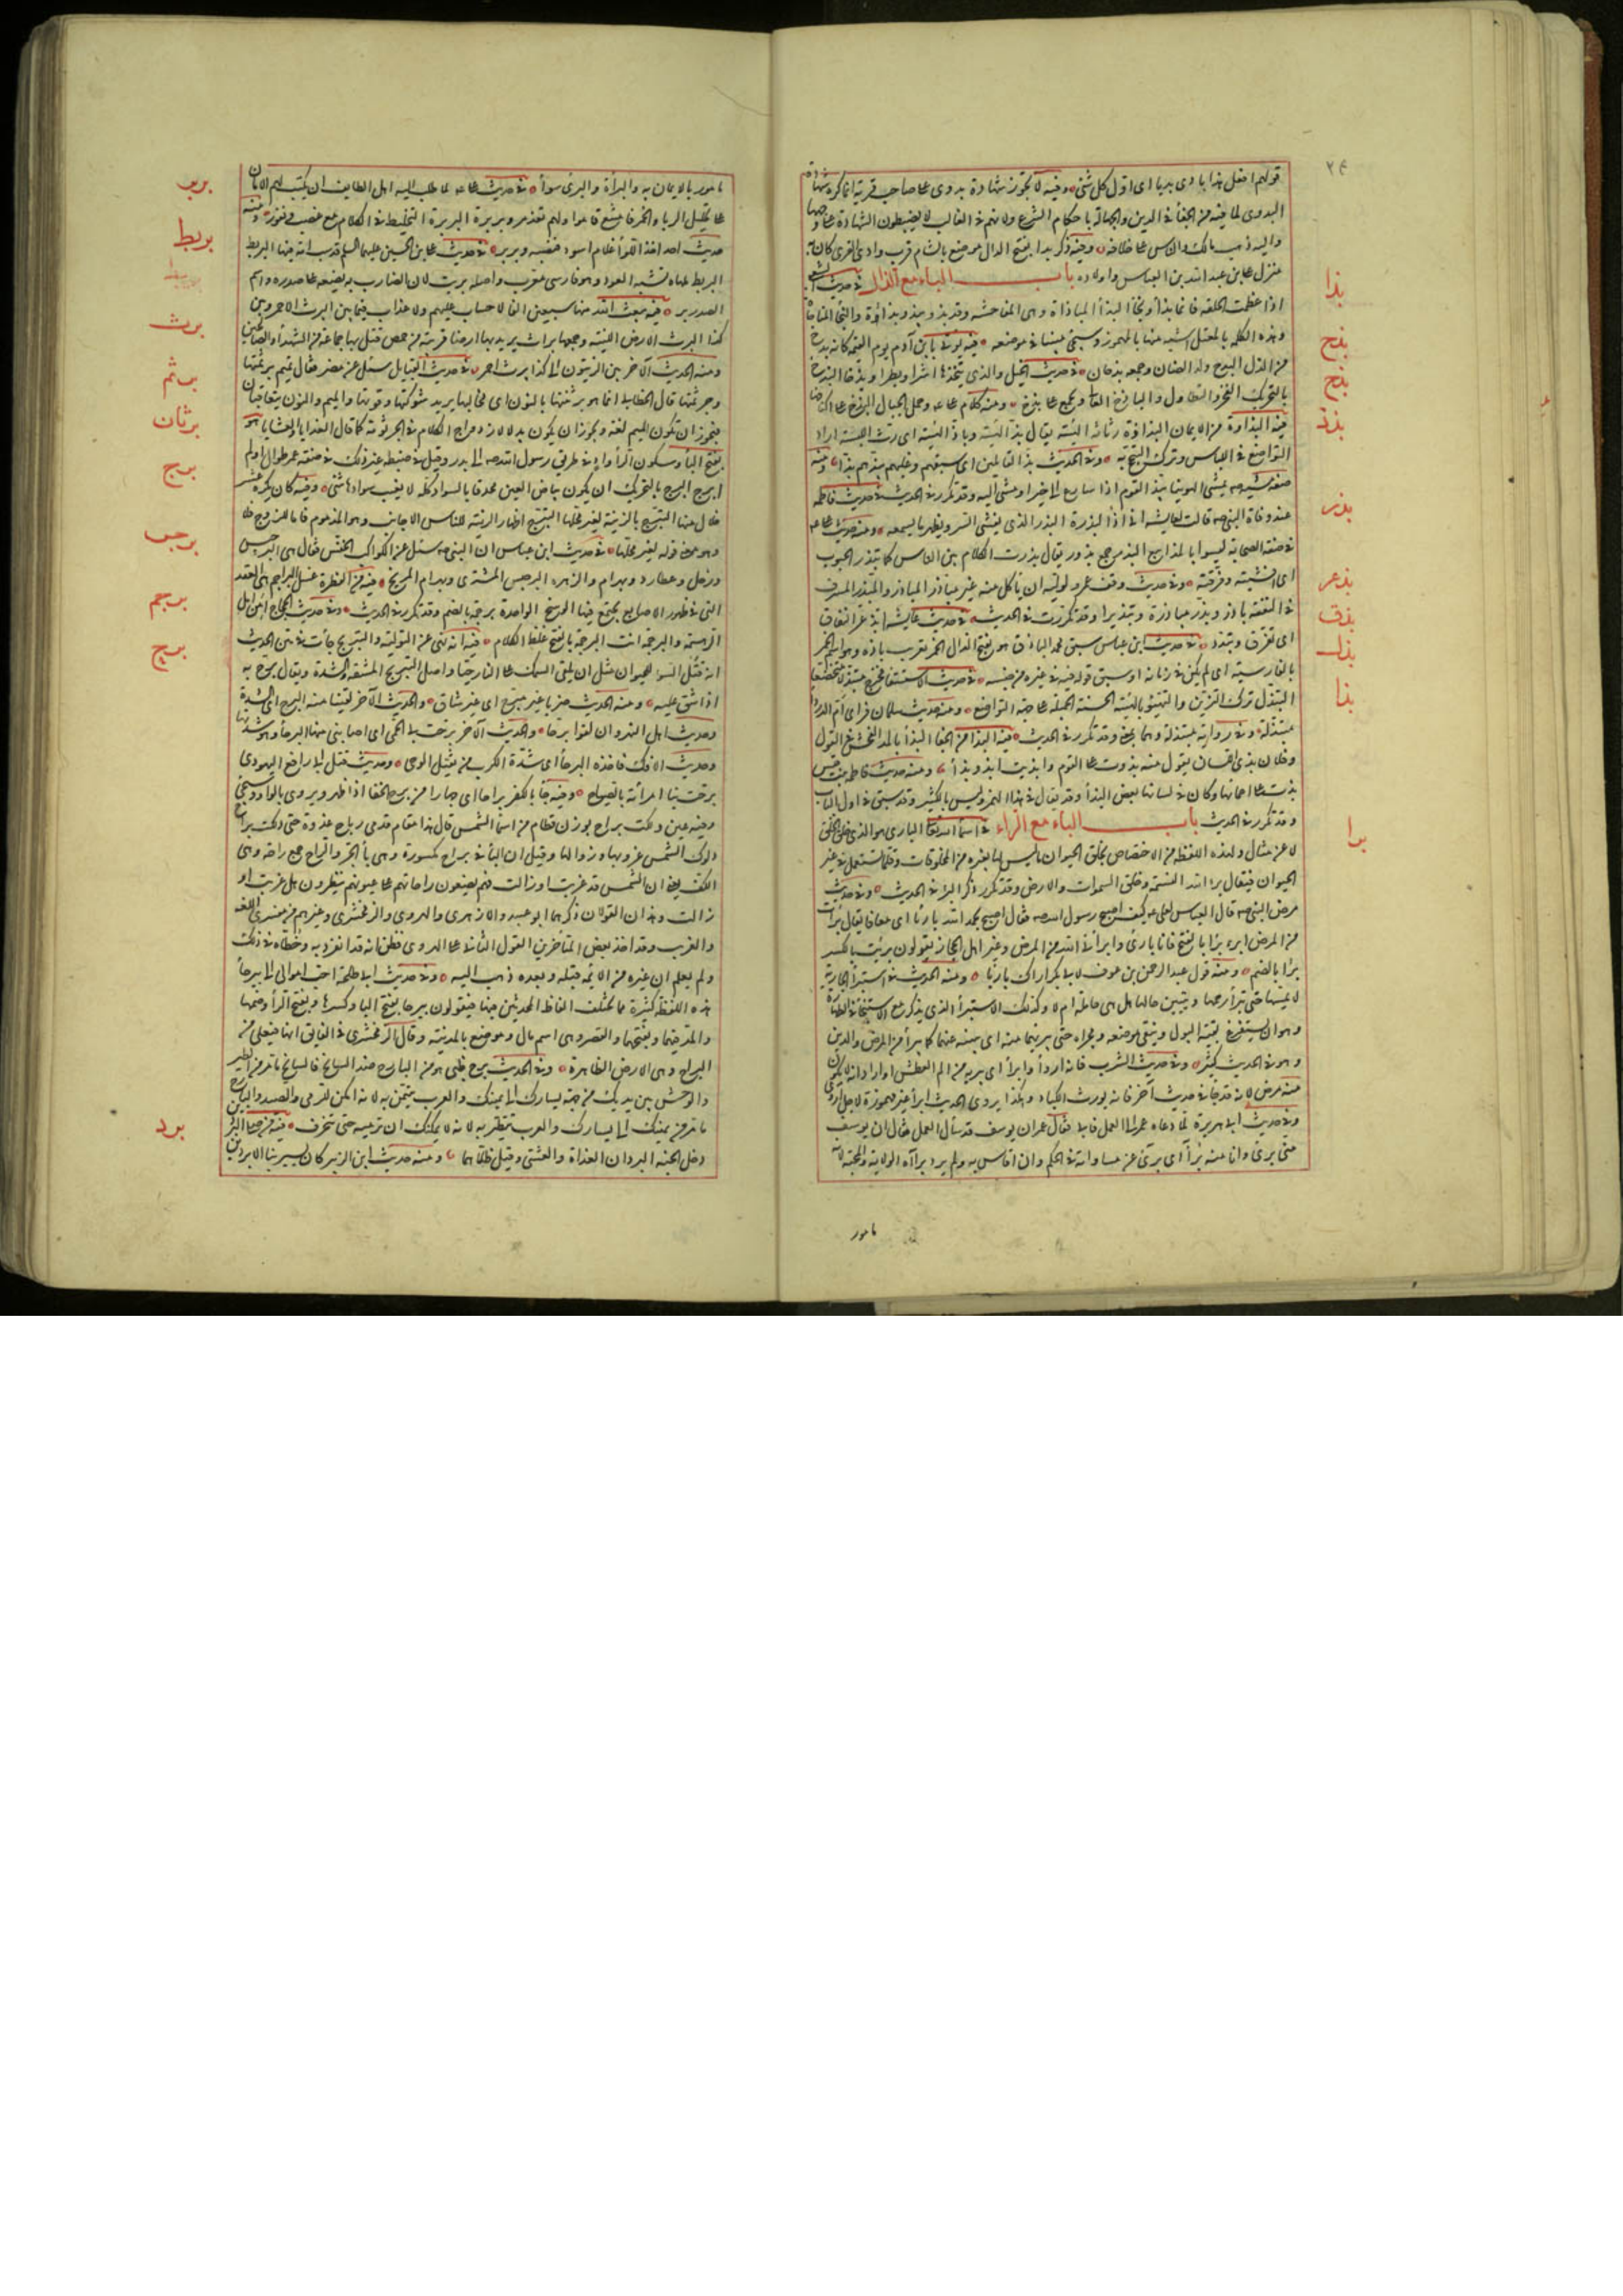 ٢٤
قولهم افعل هذا بادى بدى اى اول كل شئ وفيه لا تجوز شهادة بدوى على صاحب قرية انما كره شهادة
البدوى لما فيه من الجفا فى الدين والجهالة باحكام الشرع ولانهم فى الغالب لا يضبطون الشهادة على وجهها
واليه ذهب مالك والناس على خلافه وفيه ذكر بدا بفتح الدال موضع بالشام قرب وادى القرى كان به
منزل على بن عبد الله بن العباس واولاده باب الباء مع الذال فى حديث الشعبى
اذا عظمت الحلقة فانما بذأ ونجا البذأ المباذاة وهى المفاحشة وقد بذو يبذو بذاوة والنجأ المناجاة
وهذه الكلمة بالمعتل اشبه منها بالمهموز وسيجئ مبينا فى موضعه فيه يؤتى بابن آدم يوم القيمة كانه بذج
من الذل البذج ولد الضان وجمعه بذجان فى حديث الخيل والذى يتخذها اشرا وبطرا وبذخا البذخ
بالتحريك الفخر والتطاول والباذخ العالى ويجمع على بذخ ومنه كلام على وحمل الجبال البذخ على اكتافها
فيه البذاذة من الايمان البذاذة رثاثة الهيئة يقال بذ الهيئة وباذ الهيئة اى رث اللبسة اراد
التواضع فى اللباس وترك التبجح به وفى الحديث بذ القائلين اى سبقهم وغلبهم يبذهم بذا ومنه
صفة مشيه يمشى الهوينا يبذ القوم اذا سارع الى خير او مشى اليه وقد تكرر فى الحديث فى حديث فاطمه
عند وفاة النبى صه قالت لعايشه انى اذا لبذرة البذر الذى يفشى السر ويظهر ما يسمعه ومنه حديث على عه
فى صفة الصحابة ليسوا بالمذاييع البذر جمع بذور يقال بذرت الكلام بين الناس كما تبذر الحبوب
اى افشيته وفرقته وفى حديث وقف عمر ولوليه ان ياكل منه غير مباذر المباذر والمبذر المسرف
فى النفقة باذر وبذر مباذرة وتبذيرا وقد تكررت فى الحديث فى حديث عايشه ابذعر النفاق
اى تفرق وتبدد فى حديث ابن عباس سبق محمد الباذق هو بفتح الذال الخمر تعريب باذه وهو اسم الخمر
بالفارسية اى لم يكن فى زمانه او سبق قوله فيه وفى غيره من جنسه فى حديث الاستسقا فخرج مبتذلا متخضعا
التبذل ترك التزين والتهيؤ بالهيئة الحسنة الجميلة على جهة التواضع ومنه حديث سلمان فراى ام الدرداء
متبذلة وفى رواية مبتذلة وهما بمعنى وقد تكرر فى الحديث فيه البذا من الجفا البذا بالمد الفحش فى القول
وفلان بذى اللسان يقول منه بذوت على القوم وابذيت ابذو بذأ ومنه حديث فاطمة بنت قيس
بذت على احمائها وكان فى لسانها بعض البذأ وقد يقال فى هذا الهمز وليس بالكثير وقد سبق فى اول الباب
وقد تكرر فى الحديث باب الباء مع الراء فى اسماء الله تعالى البارى هو الذى خلق الخلق
لا عن مثال ولهذه اللفظة من الاختصاص بخلق الحيوان ما ليس لها بغيره من المخلوقات وقلما تستعمل فى غير
الحيوان فيقال برا الله النسمة وخلق السموات والارض وقد تكرر ذكر البرء فى الحديث وفى حديث
مرض النبى صه قال العباس لعلى عه كيف اصبح رسول الله صه فقال اصبح بحمد الله بارئا اى معافا يقال برأت
من المرض ابرء برأ بالفتح فانا بارئ وابرأنى الله من المرض وغير اهل الحجاز يقولون برئت بالكسر
برأ بالضم ومنه قول عبد الرحمن بن عوف لابى بكر اراك بارئا ومنه الحديث فى استبرأ الجارية
لا يمسها حتى تبرأ رحمها ويتبين حالها هل هى حامل ام لا وكذلك الاستبرأ الذى يذكر مع الاستنجأ فى الطهارة
وهو ان يستفرغ بقية البول وينقى موضعه ومجراه حتى يبريهما منه اى يبينه عنهما كما يبرأ من المرض والدين
وهو فى الحديث كثير وفى حديث الشرب فانه اروأ وابرأ اى يبريه من الم العطش او اراد انه لا يكون
منه مرض لانه قد جاء فى حديث آخر فانه يورث الكباد وهكذا يروى الحديث ابرأ غير مهموزة لاجل اروى
وفى حديث ابى هريرة لما دعاه عمر الى العمل فابى فقال عمر ان يوسف قد سأل العمل فقال ان يوسف
منى برئ وانا منه برأ اى برئ عن مساواته فى الحكم وان اقاس به ولم يرد برأة الولاية والمحبة لانه
مامور
بذا
بذج
بذخ
بذذ
بذر
بذعر
بذق
بذل
بذا
برا
مامور بالايمان به والبرأة والبرئ سواء فى حديث على عه لما طلب اليه اهل الطايف ان يكتب لهم الامان
على تحليل الربا والخمر فامتنع قاموا ولهم تغذمر وبربرة البربرة التخليط فى الكلام مع غضب ونفور ومنه
حديث احد اخذ اللوأ غلام اسود فنصبه وبربر فى حديث على بن الحسين عليهما السلم لا قدست امة فيها البربط
البربط ملهاة تشبه العود وهو فارسى معرب واصله بربت لان الضارب به يضعه على صدره واسم
الصدر بر فيه يبعث الله منها سبعين الفا لا حساب عليهم ولا عذاب فيما بين البرث الاحمر وبين
كذا البرث الارض اللينة وجمعها براث يريد بها ارضا قريبة من حمص قتل بها جماعة من الشهدأ والصالحين
ومنه الحديث الآخر بين الزيتون الى كذا برث احمر فى حديث القبايل سئل عن مضر فقال تميم برثمتها
وجرثمتها قال الخطابى انما هو برثنتها بالنون اى مخالبها يريد شوكتها وقوتها والميم والنون يتعاقبان
فيجوز ان تكون الميم لغة ويجوز ان يكون بدلا لازدواج الكلام فى الجرثومة كما قال الغدايا والعشايا هو
بفتح البأ وسكون الرأ واد فى طريق رسول الله صه الى بدر وقيل فى ضبطه غير ذلك فى صفة عمر طوال ادلم
ابرج البرج بالتحريك ان يكون بياض العين محدقا بالسواد كله لا يغيب سوادها شئ وفيه كان يكره عشر
خلال منها التبرج بالزينة لغير محلها التبرج اظهار الزينة للناس الاجانب وهو المذموم فاما للزوج فلا
وهو معنى قوله لغير محلها فى حديث ابن عباس ان النبى صه سئل عن الكواكب الخنس فقال هى البرجيس
وزحل وعطارد وبهرام والزهره البرجيس المشترى وبهرام المريخ فيه من الفطرة غسل البراجم هى العقد
التى فى ظهور الاصابع يجتمع فيها الوسخ الواحدة برجمة بالضم وقد تكرر فى الحديث وفى حديث الحجاج امن اهل
الرهسمة والبرجمة انت البرجمة بالفتح غلظ الكلام فيه انه نهى عن التوليه والتبريح جأت فى متن الحديث
انه قتل السوء للحيوان مثل ان يلقى السمك على النار حيا واصل التبريح المشقة والشدة ويقال برح به
اذا شق عليه ومنه الحديث ضربا غير مبرح اى غير شاق والحديث الآخر لقينا منه البرح اى الشدة
وحديث اهل النهروان لقوا برحا والحديث الآخر برحت بى الحمى اى اصابنى منها البرحأ وهو شدتها
وحديث الافك فاخذه البرحأ اى شدة الكرب من ثقل الوحى وحديث قتل ابى رافع اليهودى
برحت بنا امرأته بالصياح وفيه جأ بالكفر براحا اى جهارا من برح الخفا اذا ظهر ويروى بالواو وسيجئ
وفيه حين دلكت براح بوزن قطام من اسمأ الشمس قال هذا مقام قدمى رباح غدوة حتى دلكت براح
دلوك الشمس غروبها وزوالها وقيل ان البأ فى براح مكسورة وهى بأ الجر والراح جمع راحة وهى
الكف يعنى ان الشمس قد غربت او زالت فهم يضعون راحاتهم على عيونهم ينظرون هل غربت او
زالت وهذان القولان ذكرهما ابو عبيد والازهرى والهروى والزمخشرى وغيرهم من مفسرى اللغه
والغريب وقد اخذ بعض المتأخرين القول الثانى على الهروى فظن انه قد انفرد به وخطأه فى ذلك
ولم يعلم ان غيره من الائمة قبله وبعده ذهب اليه وفى حديث ابى طلحة احب اموالى الى بيرحأ
هذه اللفظة كثيرة ما تختلف الفاظ المحدثين فيها فيقولون بيرحا بفتح البا وكسرها وبفتح الرأ وضمها
والمد فيهما وبفتحهما والقصر وهى اسم مال وموضع بالمدينة وقال الزمخشرى فى الفايق انها فيعلى من
البراح وهى الارض الظاهرة وفى الحديث برح ظبى هو من البارح ضد السانح فالسانح ما مر من الطير
والوحش بين يديك من جهة يسارك الى يمينك والعرب تتيمن به لانه امكن للرمى والصيد والبارح
ما مر من يمينك الى يسارك والعرب تتطير به لانه لا يمكنك ان ترميه حتى تنحرف فيه من صلى البردين
دخل الجنة البردان الغداة والعشى وقيل ظلاهما ومنه حديث ابن الزبير كان يسير بنا الابردين
بربر
بربط
برث
برثم
برثان
برج
برجس
برجم
برح
برد